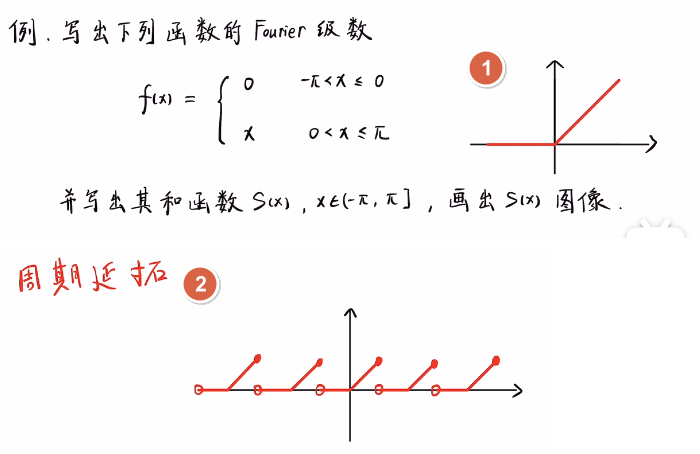 例. 写出下列函数的 Fourier 级数
1
f(x) = { 0 -π<x≤0
x 0<x≤π
并写出其和函数 S(x), x∈(-π, π], 画出 S(x) 图像.
周期延拓
2